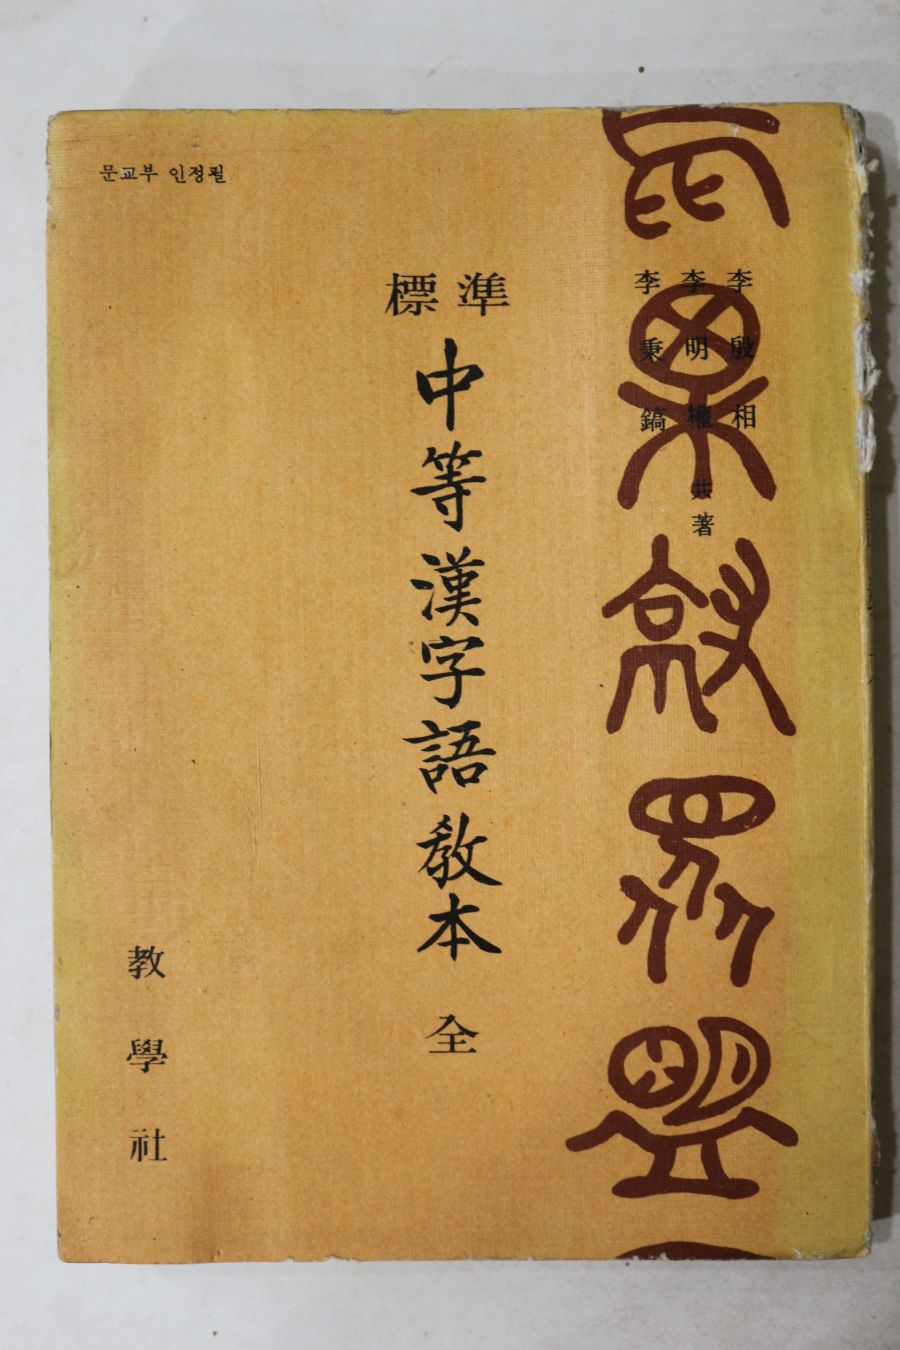 문교부 인정필
標準
中等漢字語教本 全
李殷相
李明權
李秉鎬
共著
教學社